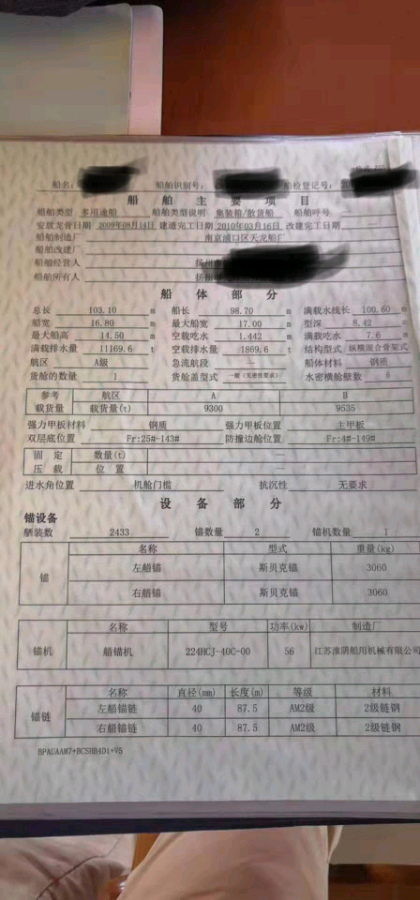 船名: 船舶识别号: 船检登记号:
船舶主要项目
船舶类型 多用途船 船舶类型说明 集装箱/散货船 船舶呼号
安放龙骨日期 2009年08月18日 建造完工日期 2010年03月16日 改建完工日期
船舶制造厂 南京浦口区天龙船厂
船舶改建厂
船舶经营人
船舶所有人
船体部分
总长 103.10 m 船长 98.70 m 满载水线长 100.60 m
船宽 16.80 m 最大船宽 17.00 m 型深 8.42
最大船高 14.50 m 空载吃水 1.442 m 满载吃水 7.6 m
满载排水量 11169.6 t 空载排水量 1869.6 t 结构型式 纵横混合骨架式
航区 A级 急流航段 — 船体材料 钢质
货舱的数量 1 货舱盖型式 水密横舱壁数
参考 航区 A B
载货量 载货量(t) 9300 9535
强力甲板材料 钢质 强力甲板位置 主甲板
双层底位置 Fr:25#-143# 防撞边舱位置 Fr:4#-149#
固定 数量(t) —
压载 位置 —
进水角位置 机舱门槛 抗沉性 无要求
设备部分
锚设备
舾装数 2433 锚数量 2 锚机数量 1
名称 型式 重量(kg)
锚 左艏锚 斯贝克锚 3060
右艏锚 斯贝克锚 3060
名称 型号 功率(kw) 制造厂
锚机 艏锚机 224HCJ-40C-00 56 江苏淮阴船用机械有限公司
名称 直径(mm) 长度(m) 等级 材料
锚链 左艏锚链 40 87.5 AM2级 2级链钢
右艏锚链 40 87.5 AM2级 2级链钢